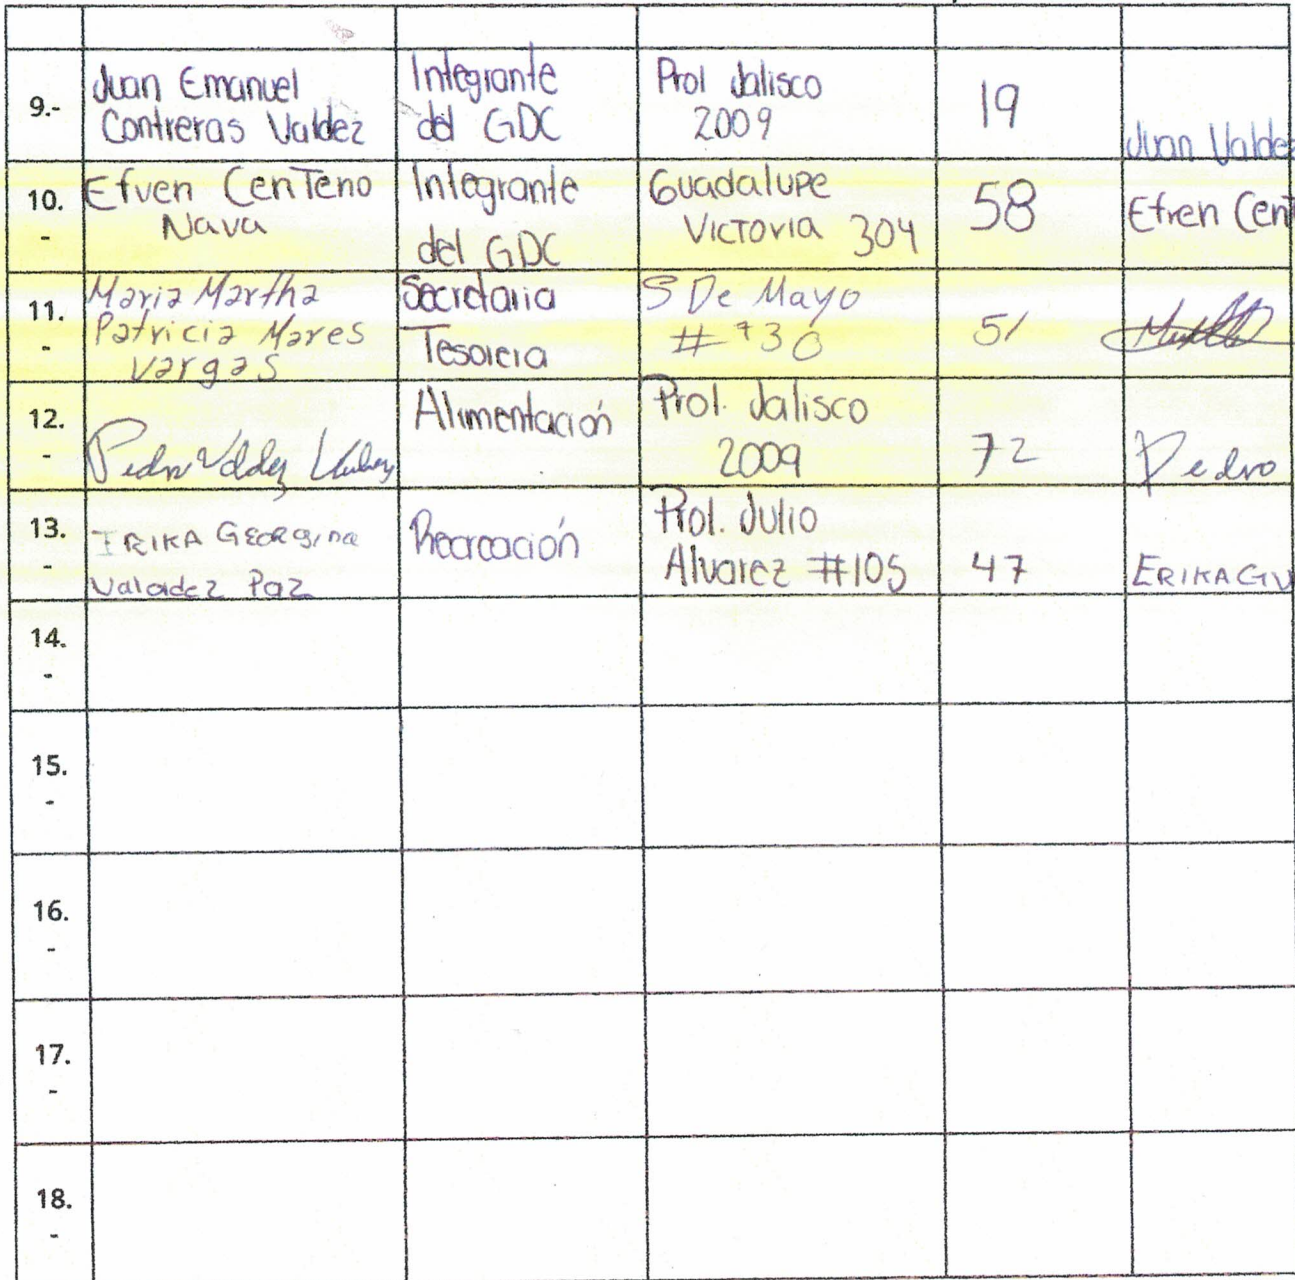 9.-
Juan Emanuel
Contreras Valdez
Integrante
del GDC
Prol Jalisco
2009
19
Juan Valdez
10.
-
Efren Centeno
Nava
Integrante
del GDC
Guadalupe
Victoria 304
58
Efren Cent
11.
-
Maria Martha
Patricia Mares
Vargas
Secretaria
Tesorera
5 De Mayo
# 730
51
12.
-
Pedro Valdez
Alimentación
Prol. Jalisco
2009
72
Pedro
13.
-
ERIKA GEORgina
Valadez Paz
Recreación
Prol. Julio
Alvarez #105
47
ERIKA GV
14.
-
15.
-
16.
-
17.
-
18.
-